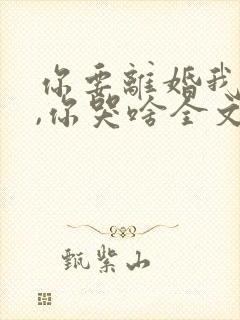 你要離婚我
,你哭啥全文
甄柴山